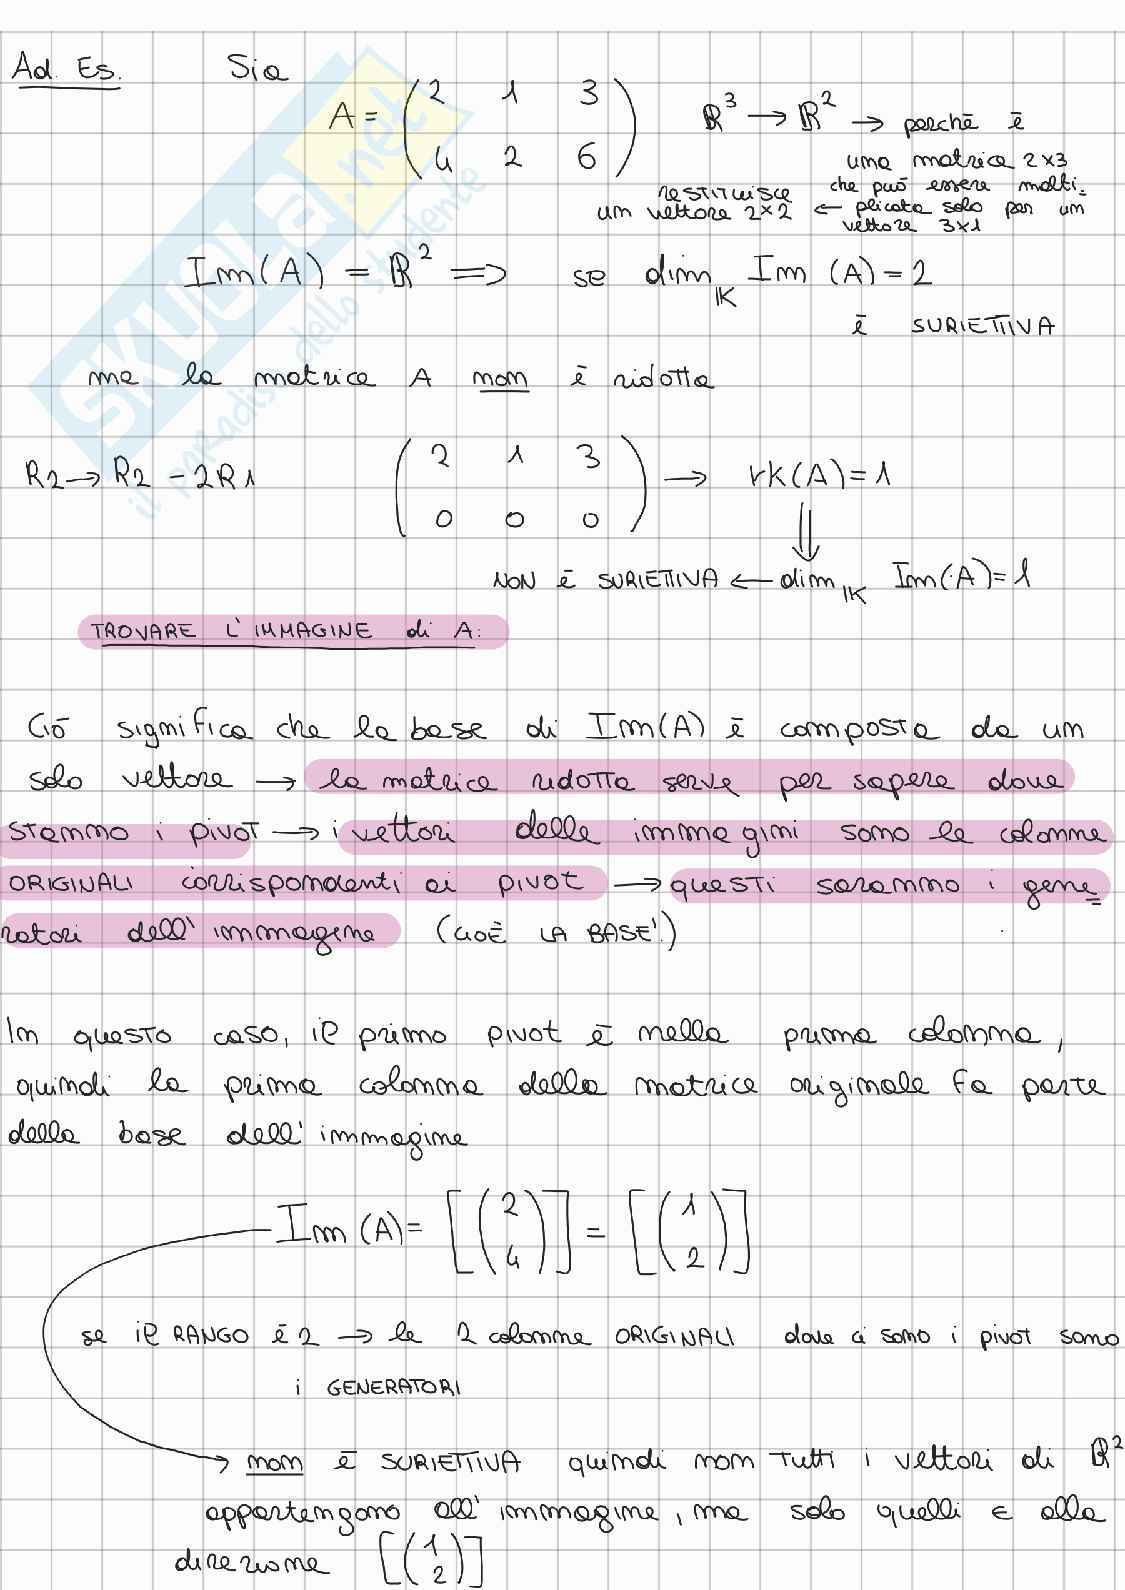 Ad. Es. Sia
A = ( 2 1 3 ) ℝ³ → ℝ² → perchē ē
( 4 2 6 ) una matrice 2x3
restituisce che può essere molti=
um vettore 2x2 ← plicata solo per um
vettore 3x1
Im(A) = ℝ² => se dim_K Im (A) = 2
ē SURIETTIVA
ma la matrice A non ē ridotta
R2 → R2 - 2R1 ( 2 1 3 ) → rk(A) = 1
( 0 0 0 ) ⇓
NON ē SURIETTIVA ← dim_K Im(A) = 1
TROVARE L'IMMAGINE di A:
Ciō significa che la base di Im(A) ē composta da um
solo vettore → la matrice ridotta serve per sapere dove
stanno i pivot → i vettori delle immagini sono le colonne
ORIGINALI corrispondenti ai pivot → questi saranno i gene=
ratori dell'immagine (cioē LA BASE!)
In questo caso, il primo pivot ē nella prima colonna,
quindi la prima colonna della matrice originale fa parte
della base dell'immagine
Im (A) = [( 2 )] = [( 1 )]
[( 4 )] [( 2 )]
se il RANGO ē 2 → le 2 colonne ORIGINALI dove ci sono i pivot sono
i GENERATORI
→ non ē SURIETTIVA quindi non tutti i vettori di ℝ²
appartengono all'immagine, ma solo quelli ∈ alla
direzione [( 1 )]
[( 2 )]
SKUOLA.net
il paradiso dello studente